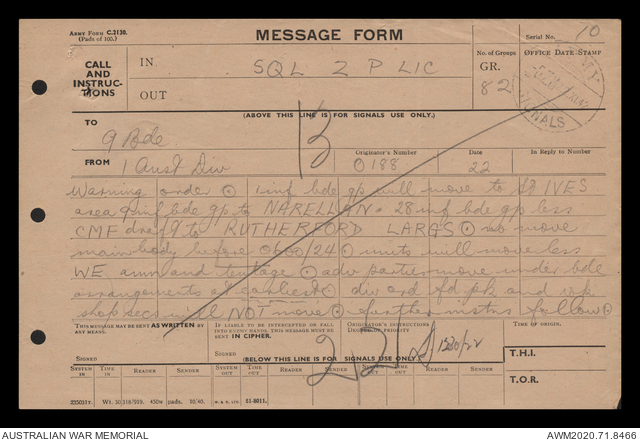 ARMY FORM C.2130.
(Pads of 100).
MESSAGE FORM
Serial No. 10
CALL
AND
INSTRUC-
TIONS
IN SQL Z P LIC
OUT
No. of Groups
GR.
82
OFFICE DATE STAMP
SIGNALS
(ABOVE THIS LINE IS FOR SIGNALS USE ONLY.)
TO
9 Bde
B
FROM 1 Aust Div
Originator's Number
O 188
Date
22
In Reply to Number
Warning order ⊙ 1 inf bde gp will move to ST IVES
area 9 inf bde gp to NARELLAN = 28 inf bde gp less
CMF to RUTHERFORD LARGS ⊙ no move
main body before 0600/24 ⊙ units will move less
WE amn and tentage ⊙ adv parties move under bde
arrangements at earliest ⊙ div ord fd pk and
shop secs will NOT move ⊙ further instns follow ⊙
THIS MESSAGE MAY BE SENT AS WRITTEN BY
ANY MEANS.
SIGNED
IF LIABLE TO BE INTERCEPTED OR FALL
INTO ENEMY HANDS, THIS MESSAGE MUST BE
SENT IN CIPHER.
SIGNED
ORIGINATOR'S INSTRUCTIONS
DEGREE OF PRIORITY
TIME OF ORIGIN.
22
1230/22
(BELOW THIS LINE IS FOR SIGNALS USE ONLY.)
T.H.I.
T.O.R.
SYSTEM IN
TIME IN
READER
SENDER
SYSTEM OUT
TIME OUT
READER
SENDER
SYSTEM OUT
TIME OUT
READER
SENDER
pads. 10/40. W. & S. LTD. 51-8011.
AUSTRALIAN WAR MEMORIAL
AWM2020.71.8466